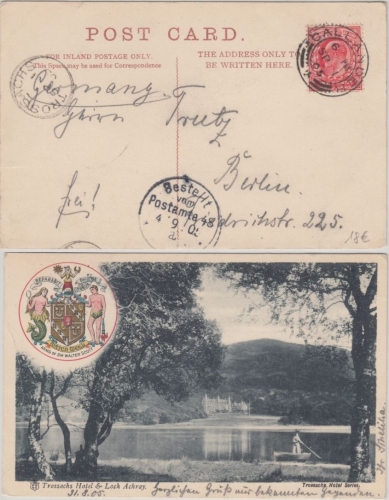 POST CARD.
FOR INLAND POSTAGE ONLY.
This Space may be used for Correspondence
THE ADDRESS ONLY TO
BE WRITTEN HERE.
TROSSACHS
CALLANDER
Germany.
Herrn Trutz
Berlin.
Friedrichstr. 225.
frei!
Bestellt
vom
Postamte 48
4 9 0
18€
ARMS OF SIR WALTER SCOTT
Trossachs Hotel & Loch Achray.
Trossachs Hotel Series.
31.8.05. Herzlichen Gruß aus bekannten Gegenden
Ihr